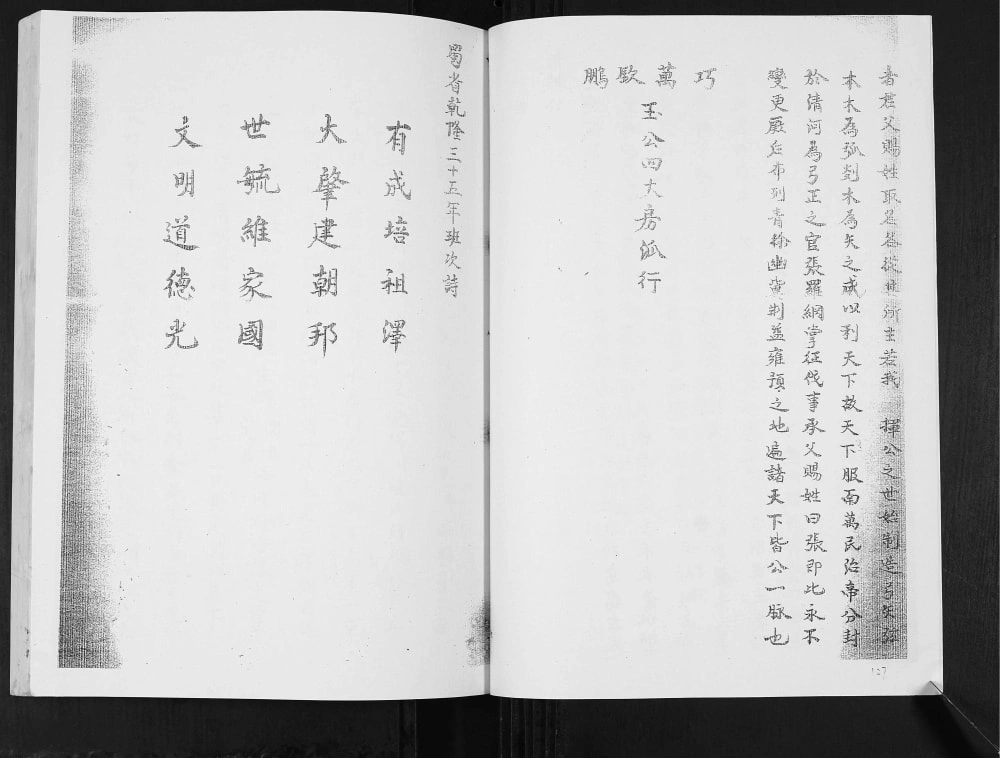 者君父賜姓取名皆從其所主若我 揮公之世始制造弓矢弦
木為弧剡木為矢之威以利天下故天下服而萬民治帝分封
於清河為弓正之官張羅網掌征伐事承父賜姓曰張即此永不
變更厥后布列青徐幽冀荆益雍預之地遍諸天下皆公一脉也
巧萬歐鵬
玉公四大房派行
127
蜀省乾隆三十五年班次詩
有成培祖澤
大肇建朝邦
世毓維家國
文明道德光